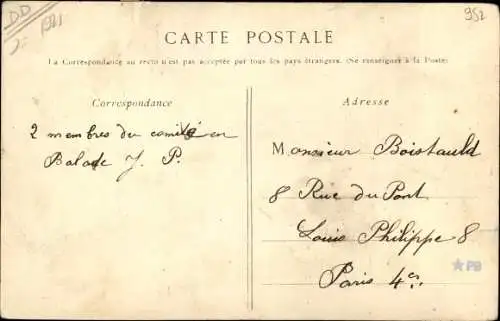 DD
1921
952
CARTE POSTALE
La Correspondance au recto n'est pas acceptée par tous les pays étrangers. (Se renseigner à la Poste)
Correspondance
2 membres du comité en
Balade J. P.
Adresse
Monsieur Boistauld
8 Rue du Pont
Louis Philippe 8
Paris 4e
★PB